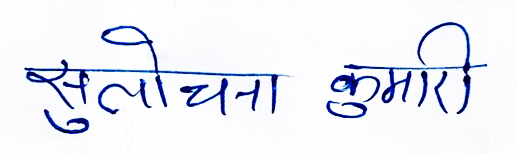 सुलोचना कुमारी